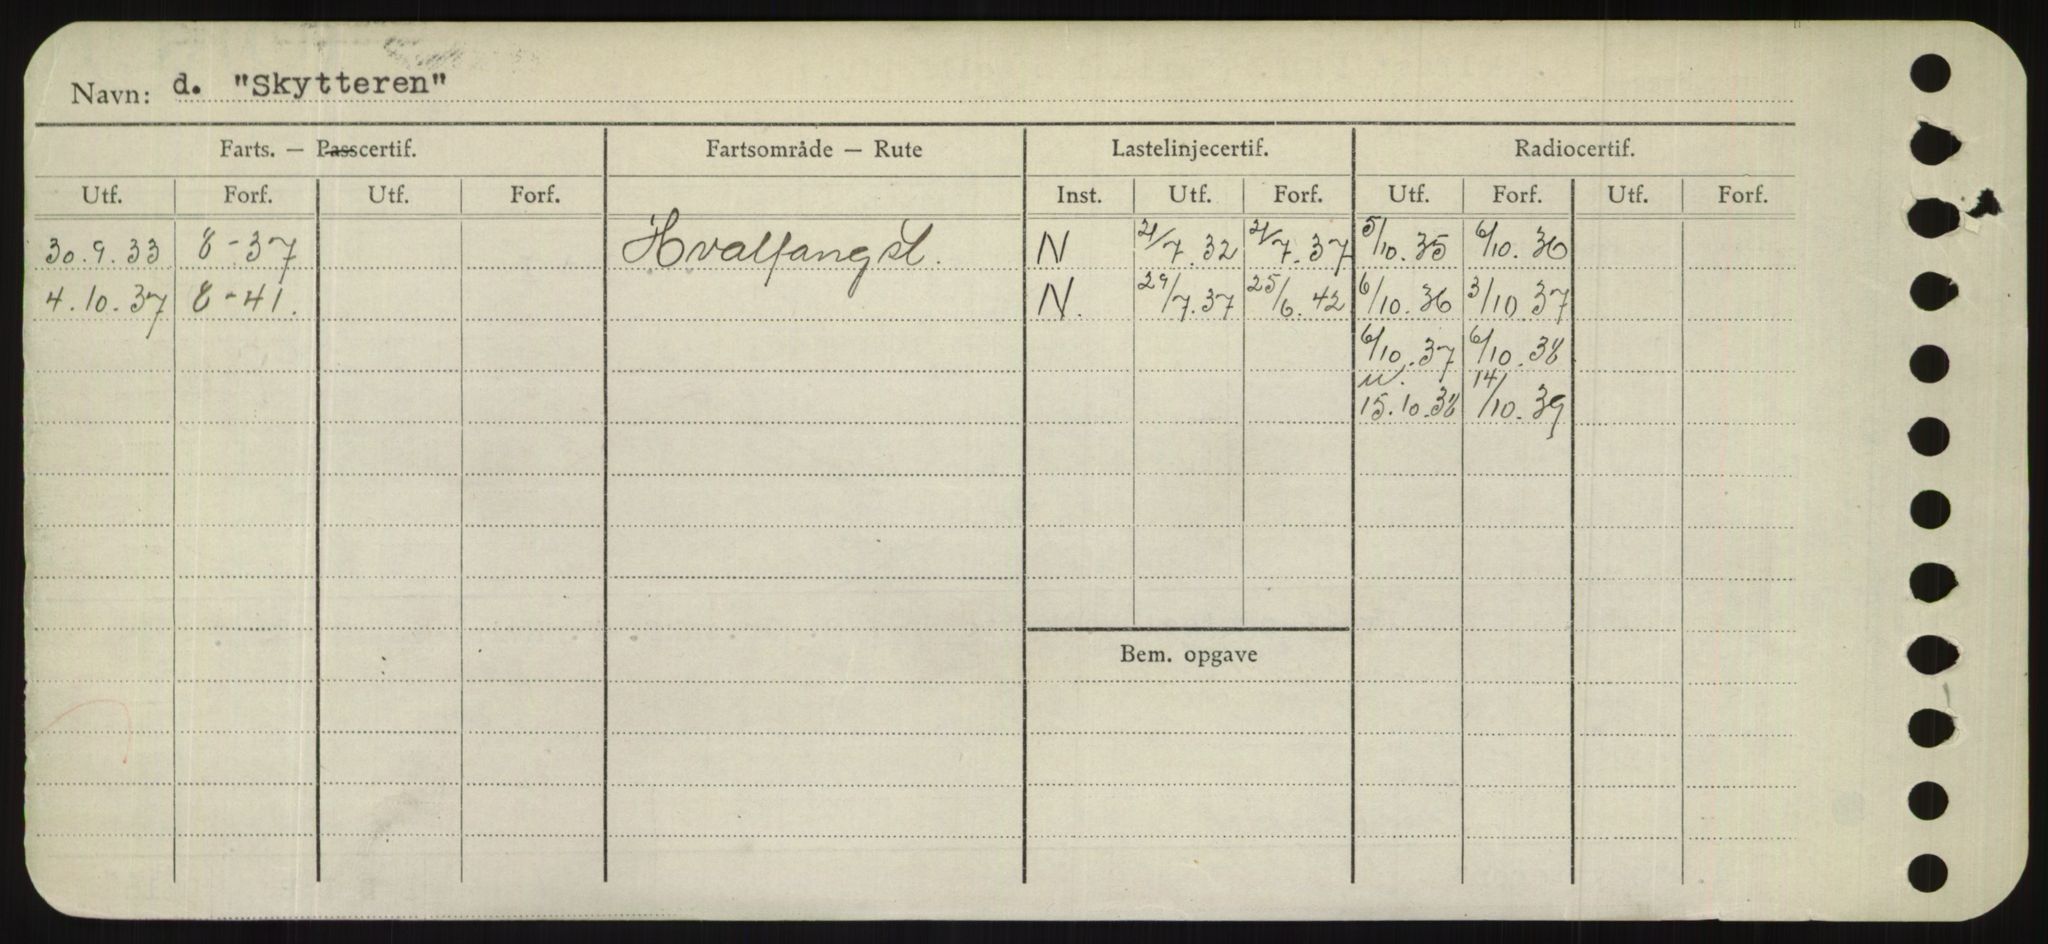 Navn: d. "Skytteren"
Farts. — Passcertif. Fartsområde — Rute Lastelinjecertif. Radiocertif.
Utf. Forf. Utf. Forf. Inst. Utf. Forf. Utf. Forf. Utf. Forf.
30.9.33 8-37 Hvalfangst. N 21/7.32 21/7.37 5/10.35 6/10.36
4.10.37 8-41. N. 29/7.37 25/6.42 6/10.36 3/10.37
6/10.37 6/10.38
15.10.38 14/10.39
Bem. opgave